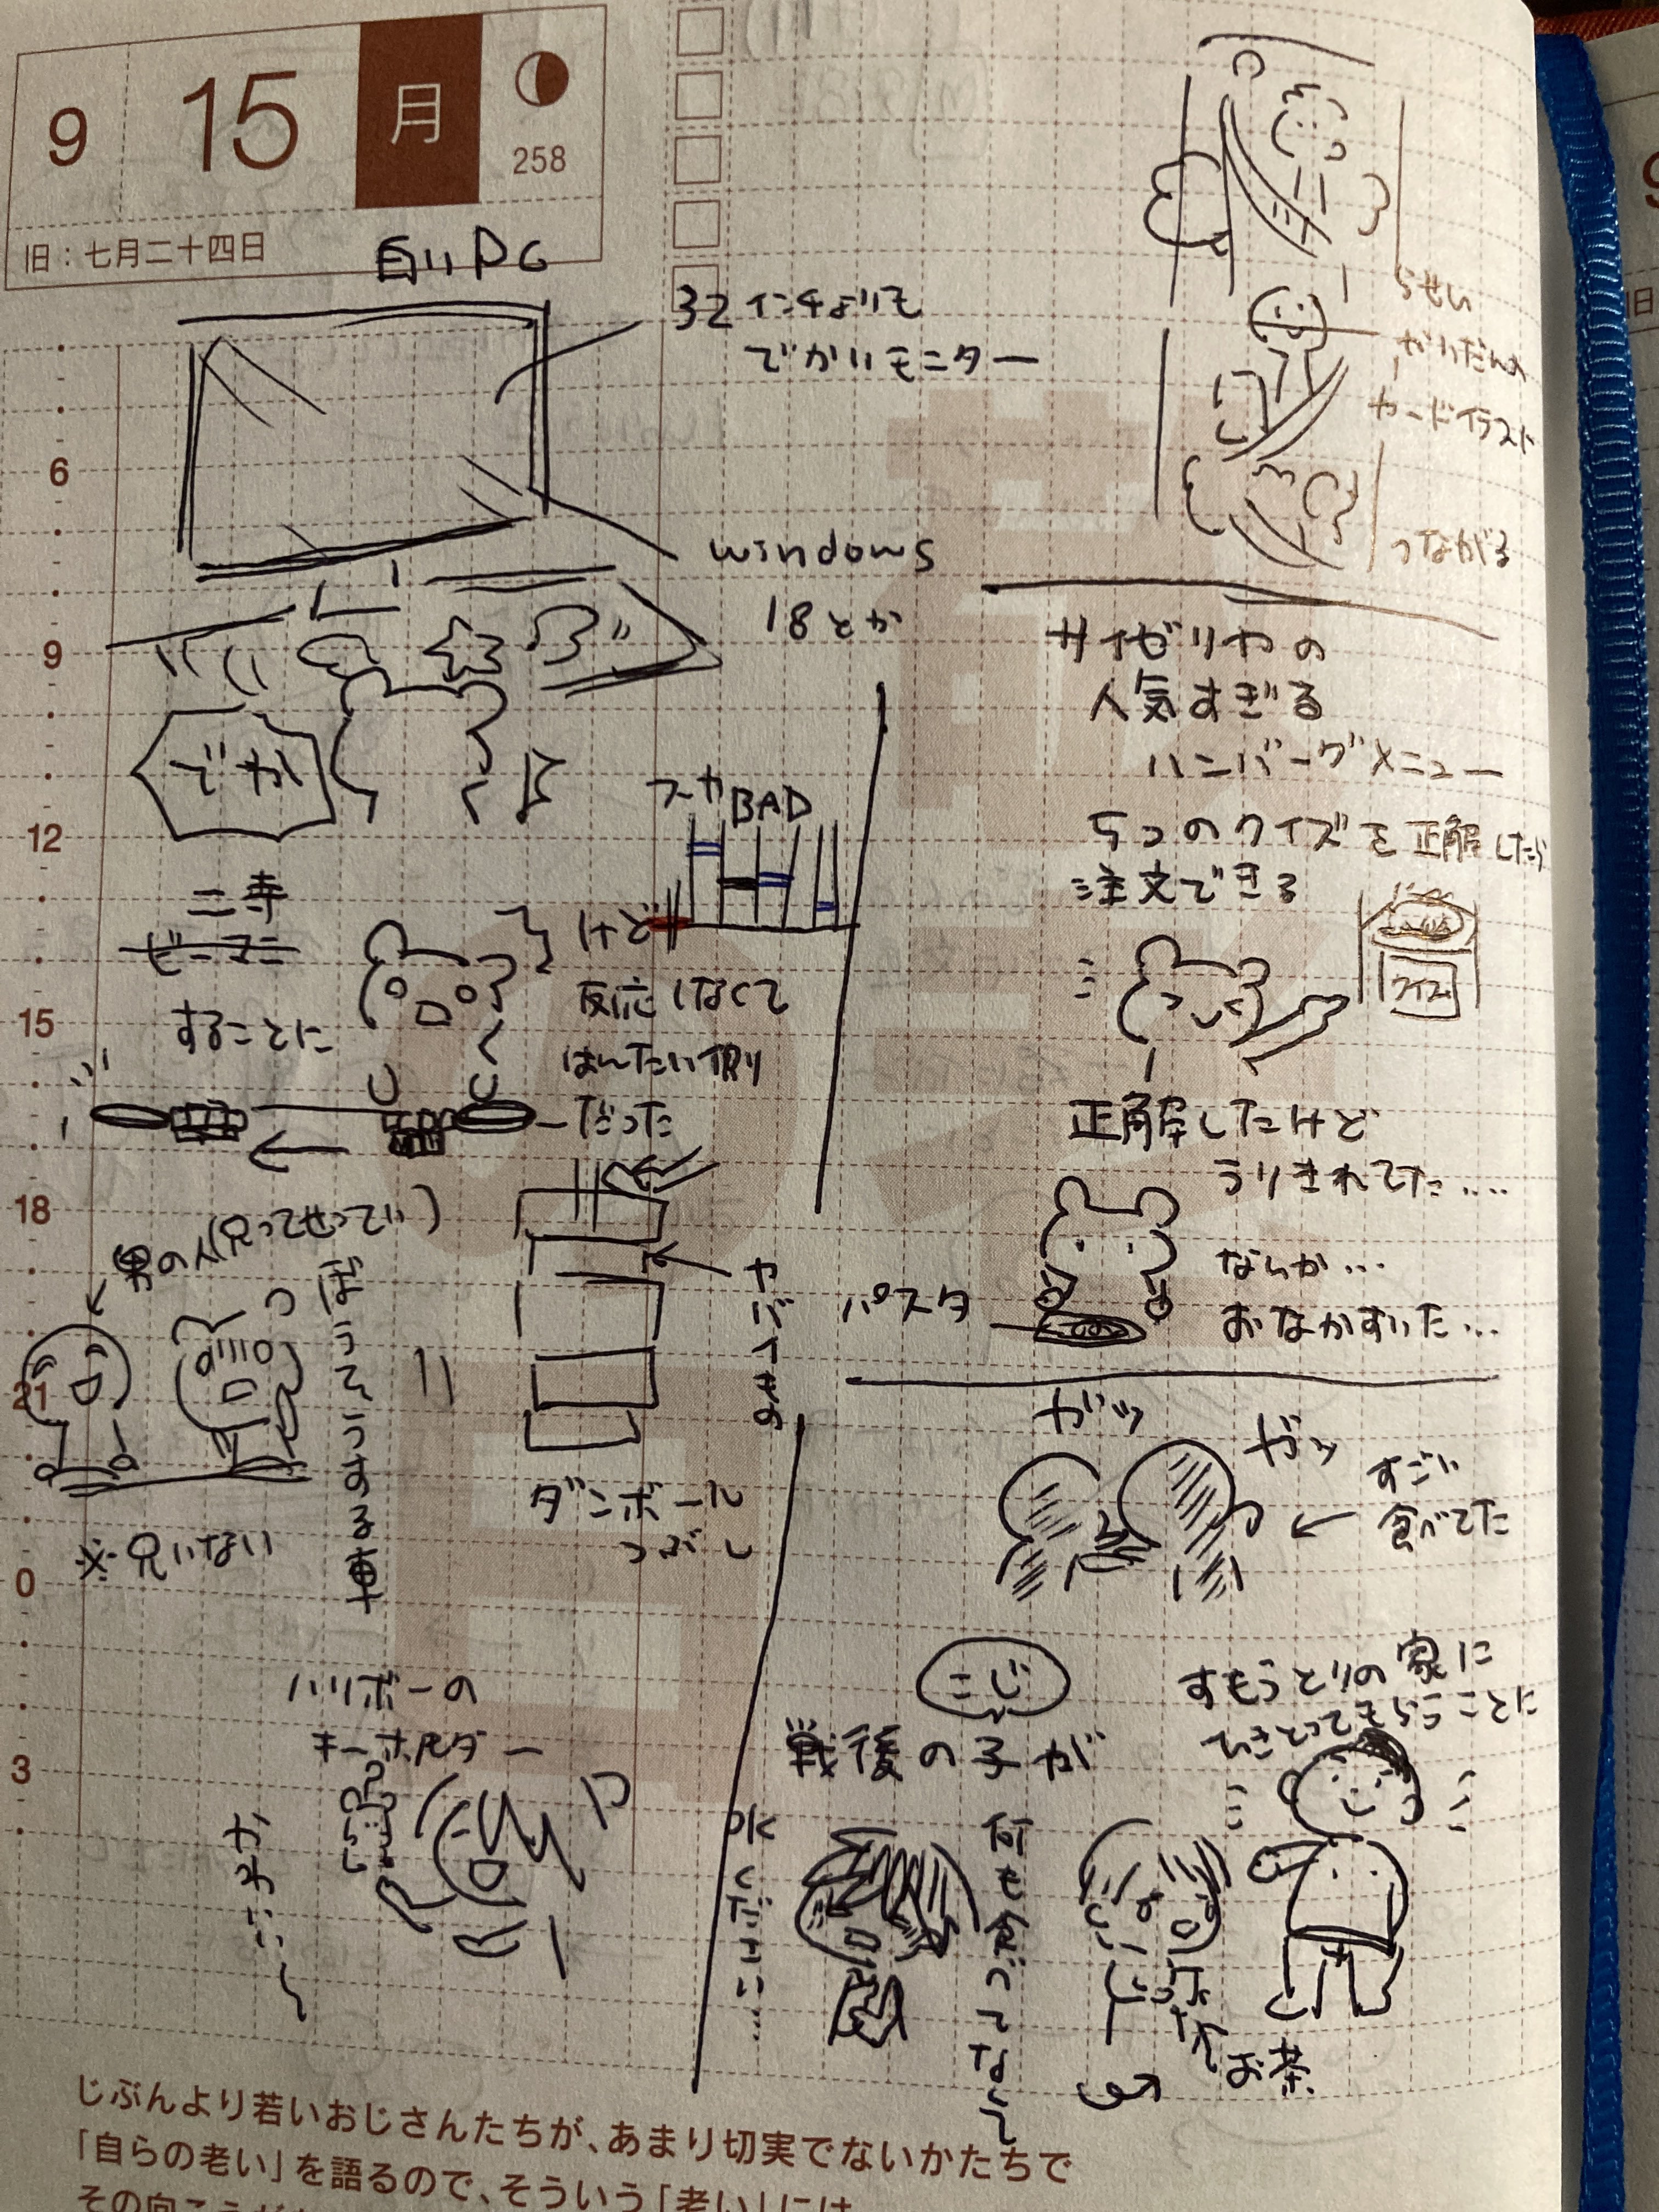 9
15
月
258
旧：七月二十四日
白いPC
32インチよりも
でかいモニター
windows
18とか
でか
二寺
ビーマニ
することに
スカ
BAD
けど
反応しなくて
はんたい側
だった
男の人(兄ってせってい)
※兄いない
ぼうそうする車
ヤバイもの
ダンボール
つぶし
ハリボーの
キーホルダー
かわいい〜
らせん
かいだんの
カードイラスト
つながる
サイゼリヤの
人気すぎる
ハンバーグメニュー
5つのクイズを正解したら
注文できる
クイズ
正解したけど
うりきれてた....
ないか...
おなかすいた...
パスタ
ガッ
ガッ
すごい
食べてた
こじ
戦後の子が
水ください...
何も食べてなくて
すもうとりの家に
ひきとってもらうことに
お茶
6
9
12
15
18
21
0
3
じぶんより若いおじさんたちが、あまり切実でないかたちで
「自らの老い」を語るので、そういう「老い」には